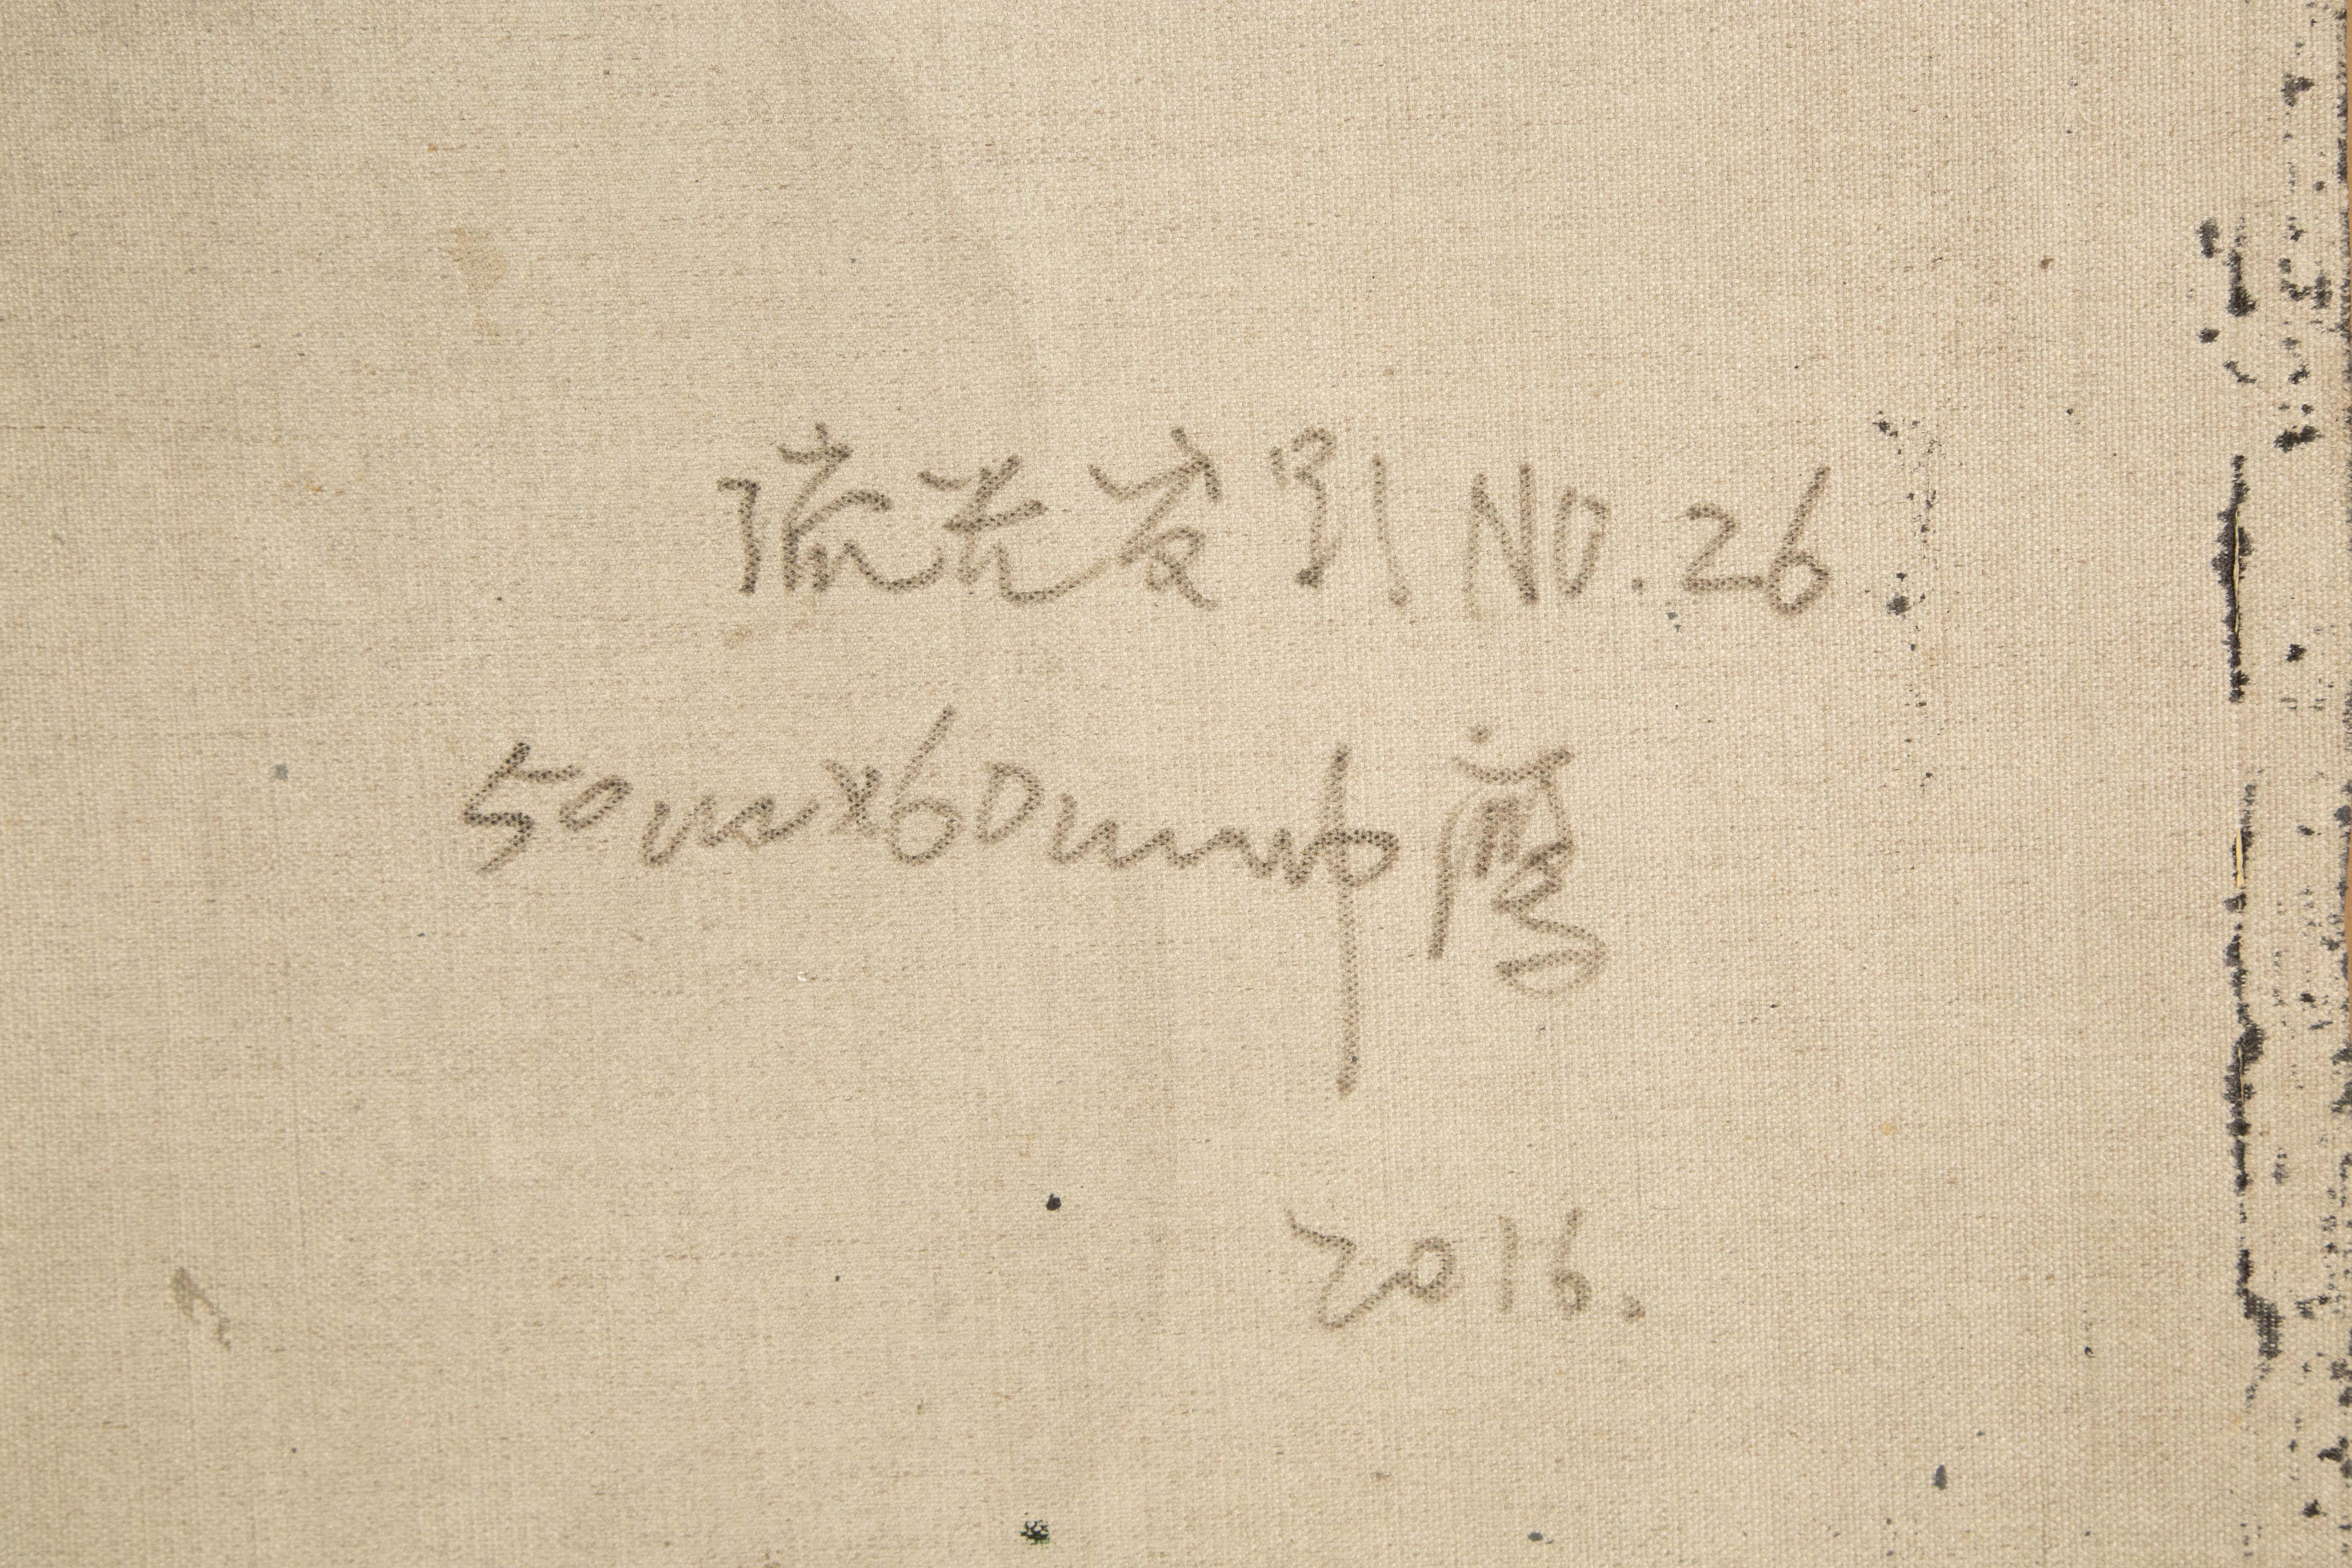 流光发引 NO.26
50cmx60cm 中
2016.